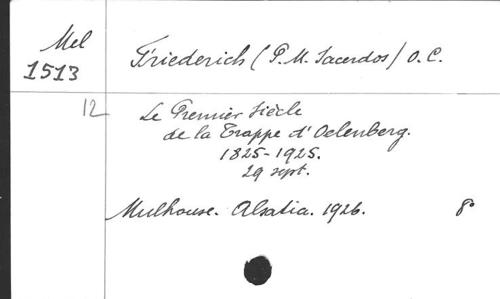 Mel
1513
Friederich (P. M. Sacerdos) O. C.
12
Le Premier Siècle
de la Trappe d'Oelenberg.
1825-1925.
29 sept.
Mulhouse. Alsatia. 1926. 8°